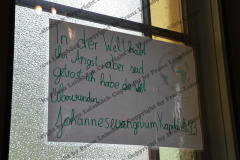 In der Welt habt
ihr Angst, aber seid
getrost, ich habe die Welt
überwunden
Johannesevangelium, Kapitel